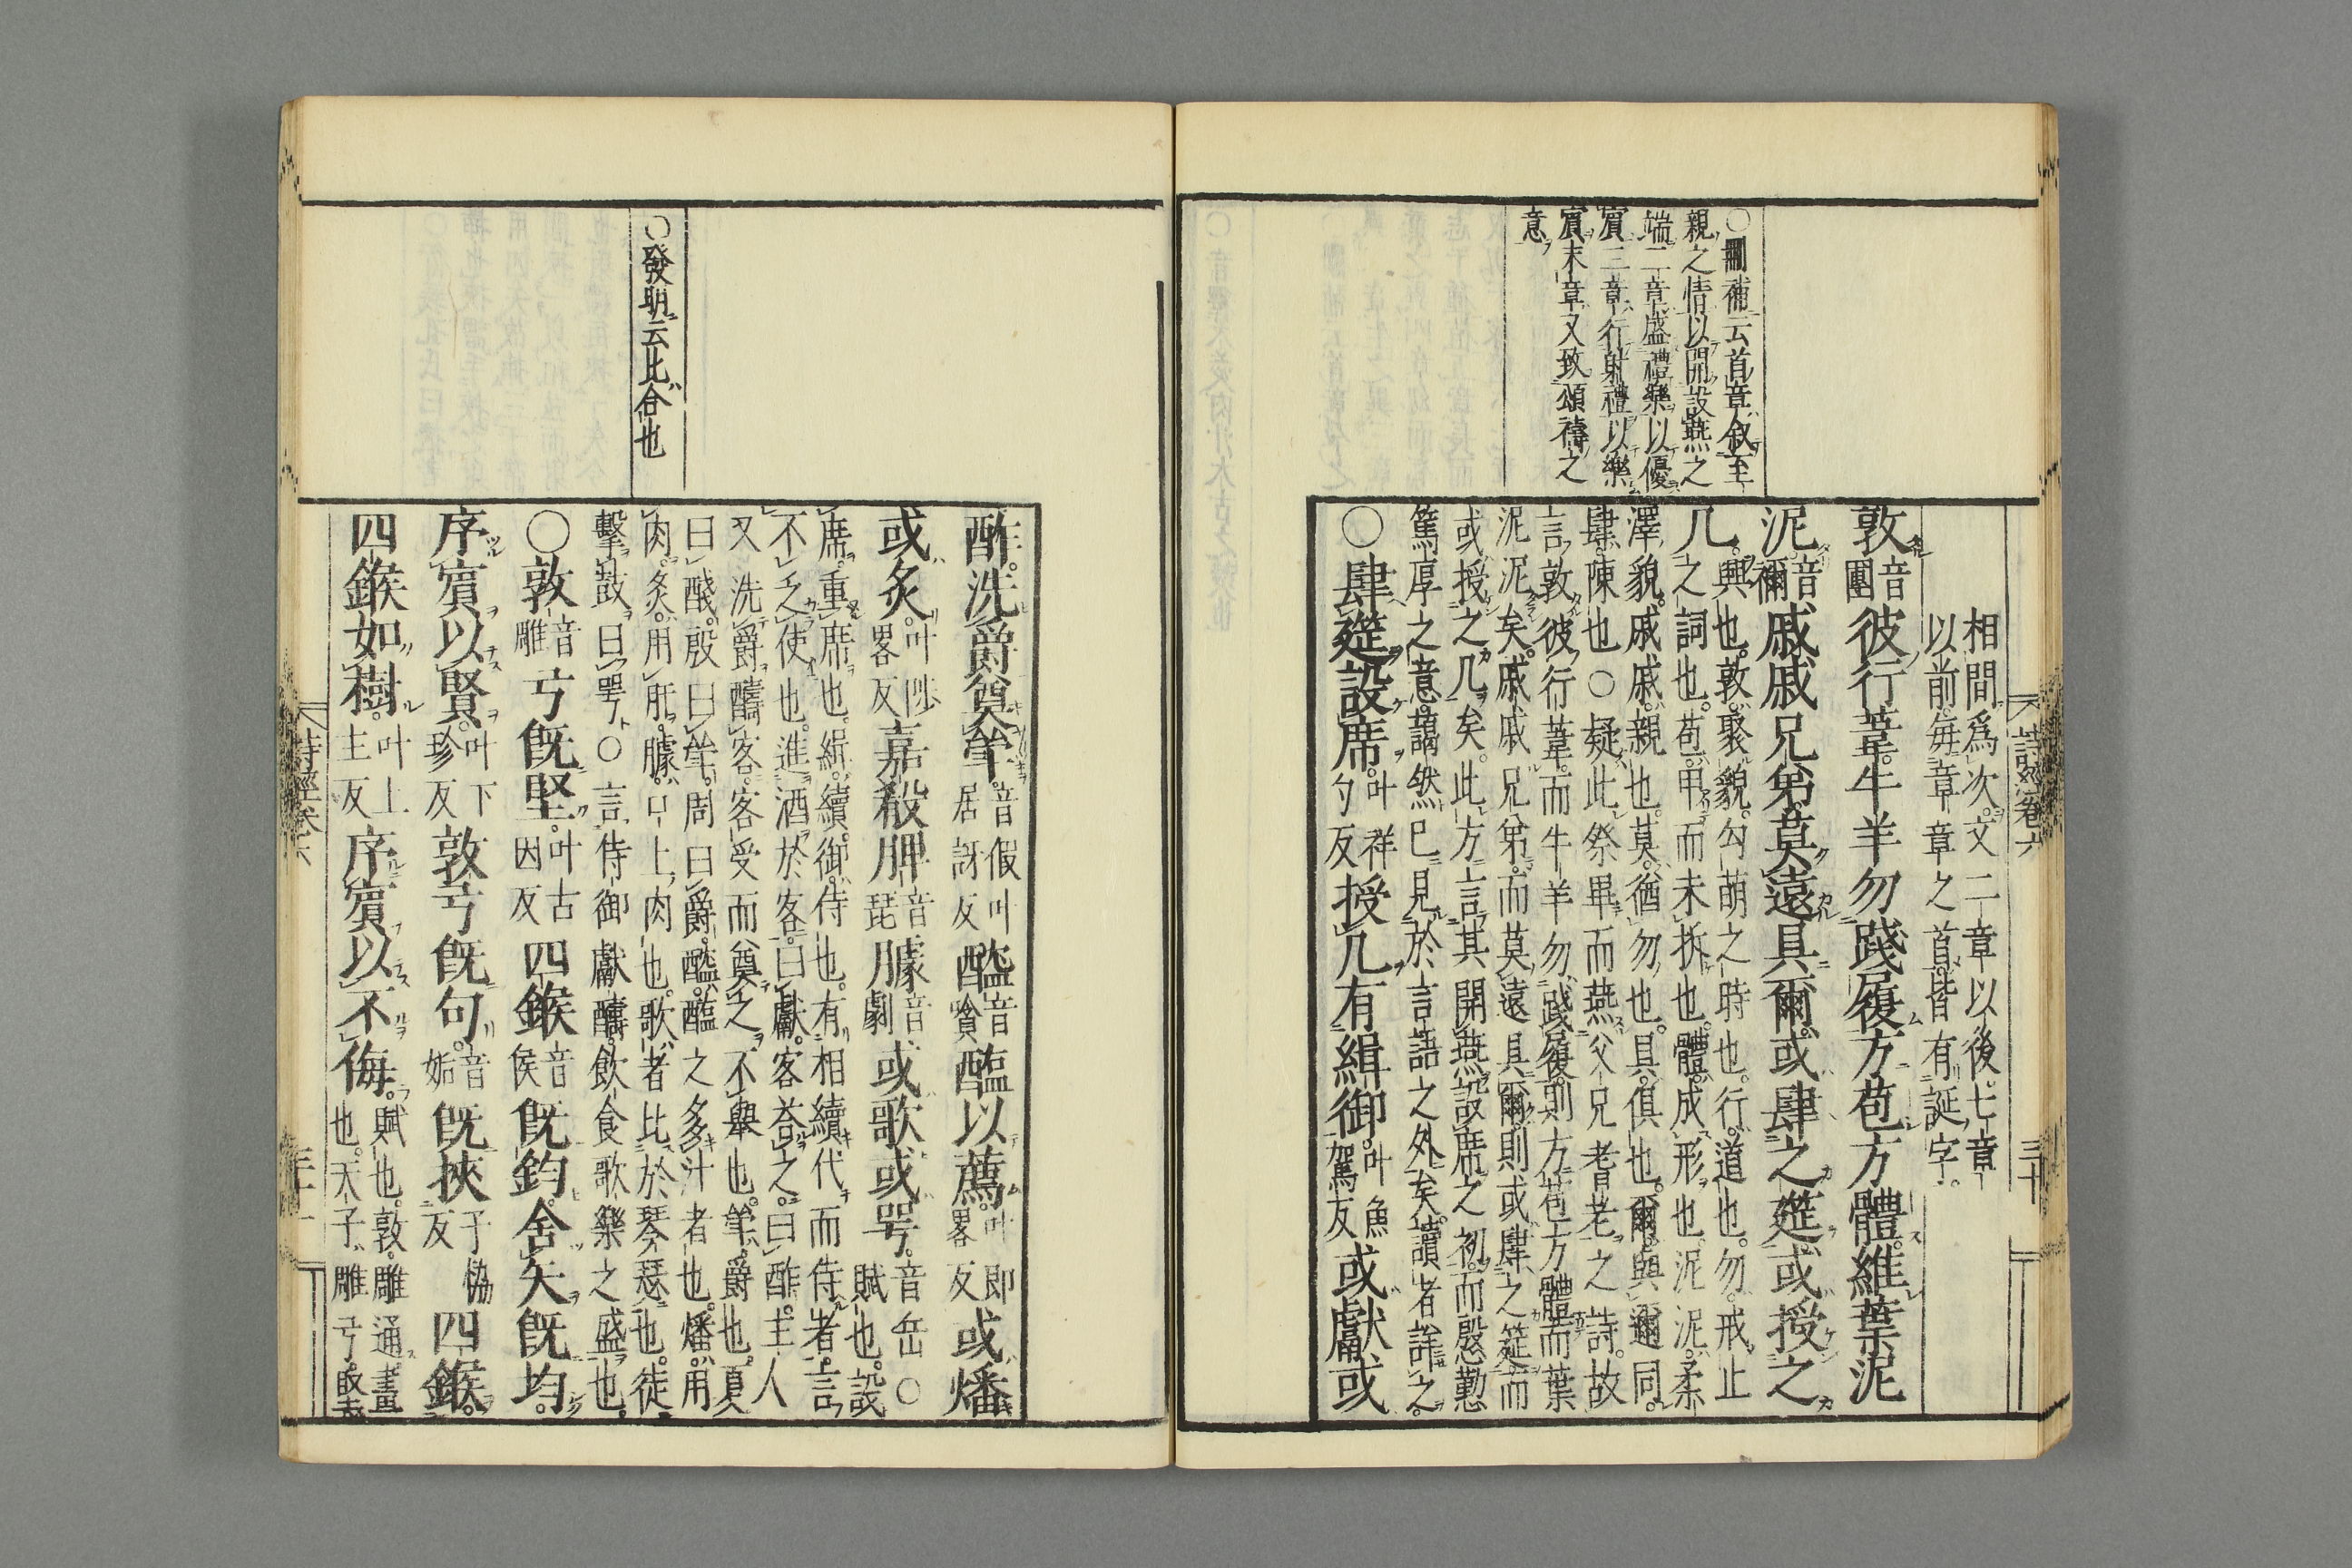 ○刪補云首章叙至
親之情以開設燕之
端二章盛禮樂以優
賓三章行射禮以樂
賓末章又致頌禱之
意
詩經卷六
三十
相間爲次又二章以後七章
以前毎章章之首皆有誕字
敦音團彼行葦牛羊勿踐履方苞方體維葉泥
泥音禰戚戚兄弟莫遠具爾或肆之筵或授之
几興也敦聚貌勾萌之時也行道也勿戒止
之詞也苞甲而未拆也體成形也泥泥柔
澤貌戚戚親也莫猶勿也具俱也爾與邇同
肆陳也○疑此祭畢而燕父兄耆老之詩故
言敦彼行葦而牛羊勿踐履則方苞方體而葉
泥泥矣戚戚兄弟而莫遠具爾則或肆之筵而
或授之几矣此方言其開燕設席之初而慇懃
篤厚之意藹然已見於言語之外矣讀者詳之
○肆筵設席叶祥勺反授几有緝御叶魚駕反或獻或
○發明云比合也
酢洗爵奠斝音假叶居訝反醓音貪醢以薦叶即畧反或燔
或炙叶陟畧反嘉殽脾音琵臄音劇或歌或咢音岳○賦也設
席重席也緝續御侍也有相續代而侍者言
不乏使也進酒於客曰獻客荅之曰酢主人
又洗爵醻客客受而奠之不舉也斝爵也夏
曰醆殷曰斝周曰爵醓醢之多汁者也燔用
肉炙用肝臄口上肉也歌者比於琴瑟也徒
擊鼓曰咢○言侍御獻醻飲食歌樂之盛也
○敦音雕弓旣堅叶古因反四鍭音侯旣鈞舍矢旣均
序賓以賢叶下珍反敦弓旣句音姤旣挾子協反四鍭
四鍭如樹叶上主反序賓以不侮賦也敦雕通畫也天子雕弓
詩經卷六
三十一